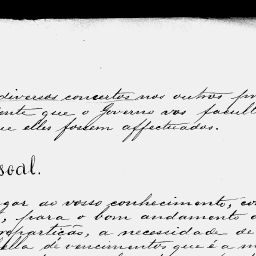 diversos concertos nos outros
ente que o Governo vos facult
ue elles fossem affectuados.
soal.
gar ao vosso conhecimento, co
, para o bom andamento d
repartição, a necessidade de
bella de vencimentos que é a m